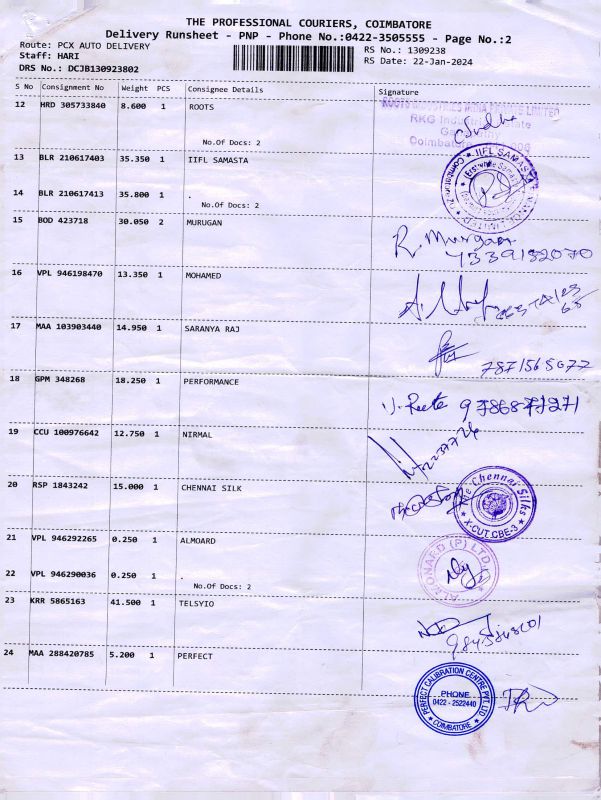 THE PROFESSIONAL COURIERS, COIMBATORE
Delivery Runsheet - PNP - Phone No.:0422-3505555 - Page No.:2
Route: PCX AUTO DELIVERY
RS No.: 1309238
Staff: HARI
RS Date: 22-Jan-2024
DRS No.: DCJB130923802
S No Consignment No Weight PCS Consignee Details Signature
12 HRD 305733840 8.600 1 ROOTS
ROOTS INDUSTRIES INDIA PRIVATE LIMITED
RKG Industrial Estate
No.Of Docs: 2
13 BLR 210617403 35.350 1 IIFL SAMASTA
IIFL SAMASTA
14 BLR 210617413 35.800 1 .
No.Of Docs: 2
15 BOD 423718 30.050 2 MURUGAN
R. Murugan
16 VPL 946198470 13.350 1 MOHAMED
17 MAA 103903440 14.950 1 SARANYA RAJ
18 GPM 348268 18.250 1 PERFORMANCE
19 CCU 100976642 12.750 1 NIRMAL
20 RSP 1843242 15.000 1 CHENNAI SILK
The Chennai Silks
X-CUT CBE-3
21 VPL 946292265 0.250 1 ALMOARD
22 VPL 946290036 0.250 1 .
No.Of Docs: 2
23 KRR 5865163 41.500 1 TELSYIO
24 MAA 288420785 5.200 1 PERFECT
PERFECT CALIBRATION CENTRE PVT. LTD.
PHONE
0422 - 2522440
COIMBATORE